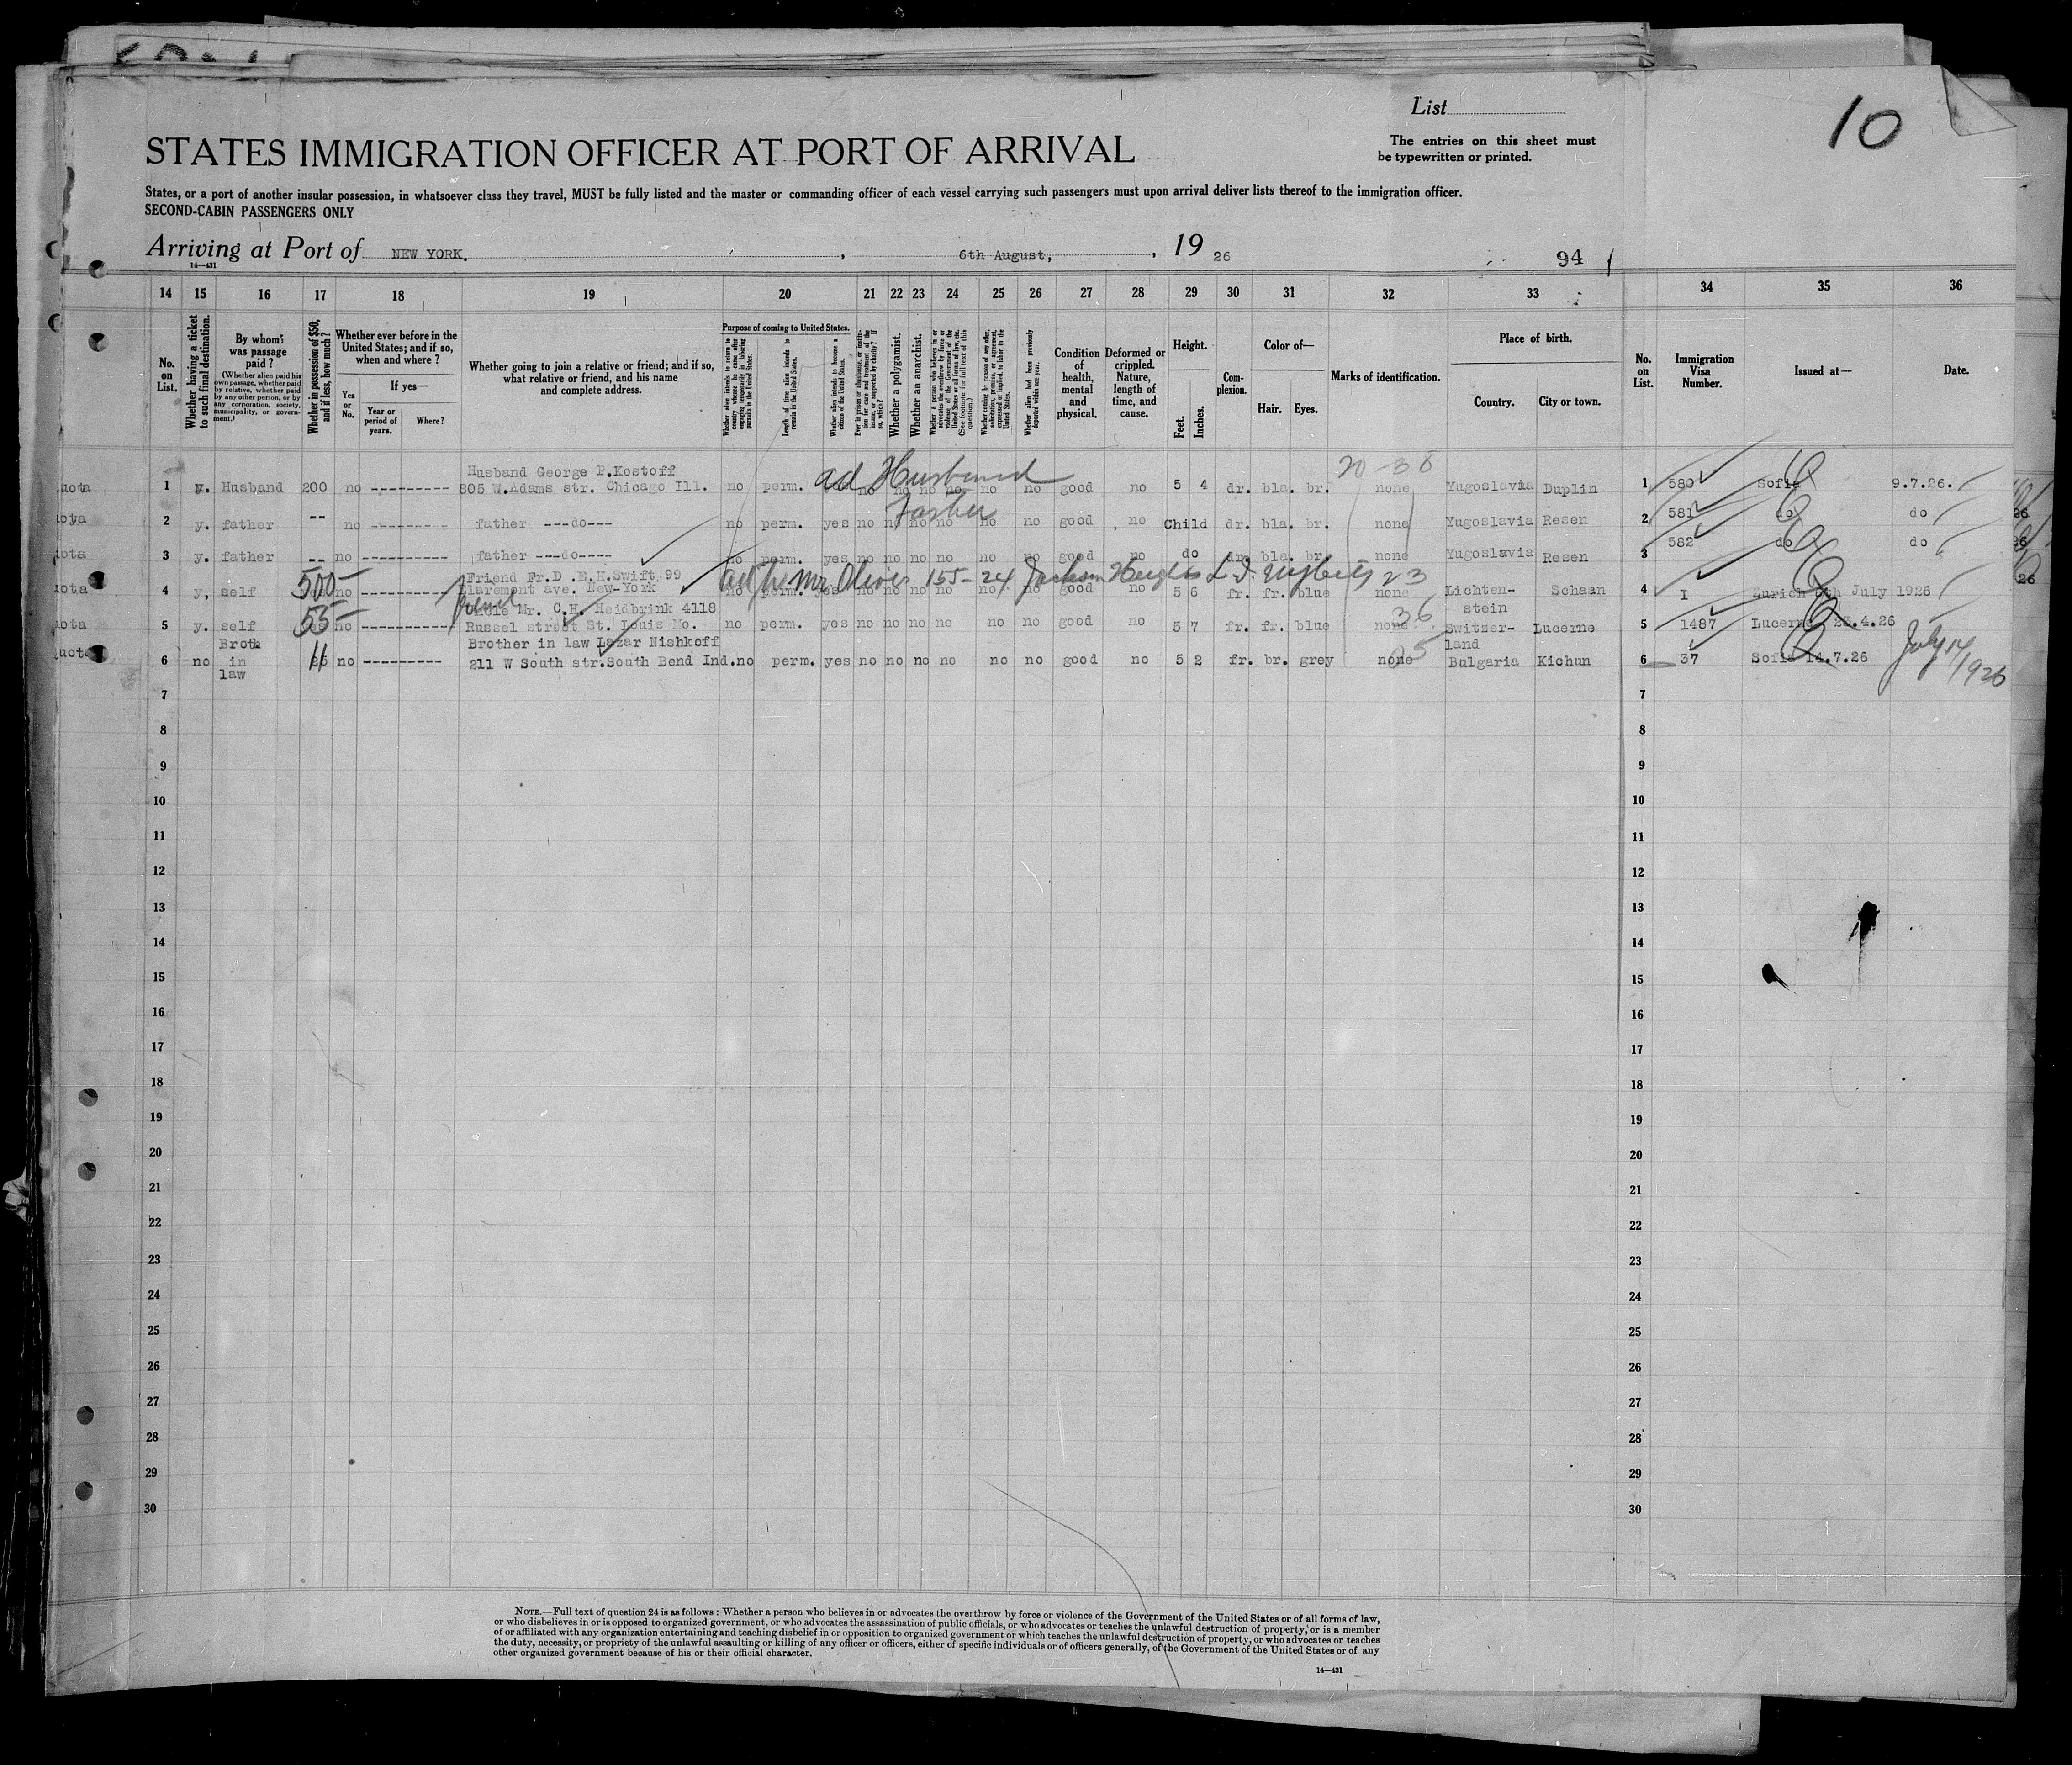 10
List
The entries on this sheet must
be typewritten or printed.
STATES IMMIGRATION OFFICER AT PORT OF ARRIVAL
States, or a port of another insular possession, in whatsoever class they travel, MUST be fully listed and the master or commanding officer of each vessel carrying such passengers must upon arrival deliver lists thereof to the immigration officer.
SECOND-CABIN PASSENGERS ONLY
Arriving at Port of NEW YORK. , 6th August, , 19 26
14—431
94
14 15 16 17 18 19 20 21 22 23 24 25 26 27 28 29 30 31 32 33 34 35 36
No. on List.
Whether having a ticket to such final destination.
By whom was passage paid?
(Whether alien paid his own passage, whether paid by relative, whether paid by any other person, or by any corporation, society, municipality, or government.)
Whether in possession of $50, and if less, how much?
Whether ever before in the United States; and if so, when and where?
Yes or No.
If yes—
Year or period of years.
Where?
Whether going to join a relative or friend; and if so, what relative or friend, and his name and complete address.
Purpose of coming to United States.
Length of time alien intends to remain in the United States.
Whether alien intends to become a citizen of the United States.
Whether a polygamist.
Whether an anarchist.
Condition of health, mental and physical.
Deformed or crippled. Nature, length of time, and cause.
Height.
Feet.
Inches.
Complexion.
Color of—
Hair.
Eyes.
Marks of identification.
Place of birth.
Country.
City or town.
No. on List.
Immigration Visa Number.
Issued at—
Date.
Husband George P.Kostoff ad Husband 20-38
uota 1 y. Husband 200 no ---------- 805 W.Adams str. Chicago Ill. no perm. no no no no no no good no 5 4 dr. bla. br. none Yugoslavia Duplin 1 580 Sofia 9.7.26.
Father
2 y. father -- no ---------- father ---do--- no perm. yes no no no no no no good no Child dr. bla. br. none Yugoslavia Resen 2 581 do do 26
uota 3 y. father -- no ---------- father ---do---- no perm. yes no no no no no no good no do dr. bla. br. none Yugoslavia Resen 3 582 do do
Friend Fr.D .E.H.Swift 99 Mr Oliver 155-24 Jackson Heights L I 23
uota 4 y, self 500 no ---------- Claremont ave. New-York no perm. yes no no no no no no good no 5 6 fr. fr. blue none Lichten- stein Schaan 4 I Zurich 6th July 1926 26
Uncle Mr. C.H. Heidbrink 4118 36
uota 5 y. self 55 no ---------- Russel street St. Louis Mo. no perm. yes no no no no no no good no 5 7 fr. fr. blue none Switzer- land Lucerne 5 1487 Lucerne 28.4.26
Brother in law Lazar Nishkoff
uota 6 no Broth in law 11 no ---------- 211 W South str.South Bend Ind. no perm. yes no no no no no no good no 5 2 fr. br. grey none Bulgaria Kichun 6 37 Sofia 14.7.26 July 14/1926
7 7
8 8
9 9
10 10
11 11
12 12
13 13
14 14
15 15
16 16
17 17
18 18
19 19
20 20
21 21
22 22
23 23
24 24
25 25
26 26
27 27
28 28
29 29
30 30
NOTE.—Full text of question 24 is as follows: Whether a person who believes in or advocates the overthrow by force or violence of the Government of the United States or of all forms of law,
or who disbelieves in or is opposed to organized government, or who advocates the assassination of public officials, or who advocates or teaches the unlawful destruction of property, or is a member
of or affiliated with any organization entertaining and teaching disbelief in or opposition to organized government or which teaches the unlawful destruction of property, or who advocates or teaches
the duty, necessity, or propriety of the unlawful assaulting or killing of any officer or officers, either of specific individuals or of officers generally, of the Government of the United States or of any
other organized government because of his or their official character.
14—431